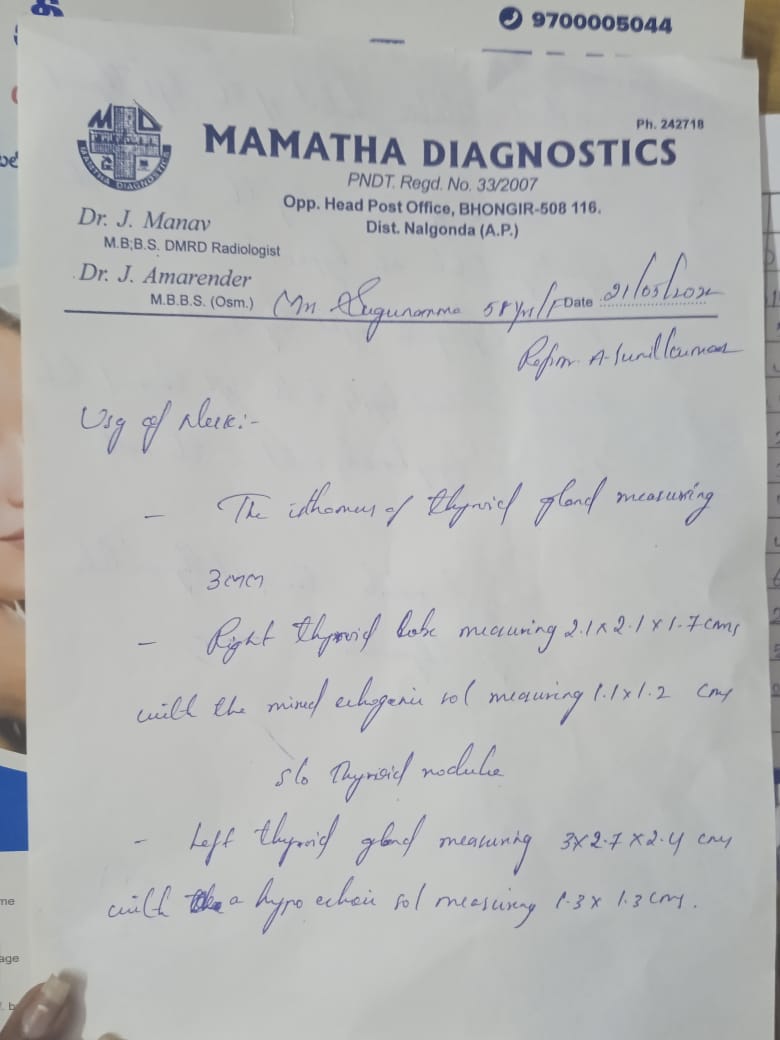 9700005044
Ph. 242718
MAMATHA DIAGNOSTICS
MAMATHA DIAGNOSTIC
PNDT. Regd. No. 33/2007
Opp. Head Post Office, BHONGIR-508 116.
Dist. Nalgonda (A.P.)
Dr. J. Manav
M.B;B.S. DMRD Radiologist
Dr. J. Amarender
M.B.B.S. (Osm.)
Sugunamma 58 yrs/F Date 21/05/202
A. Sunil Kumar
Usg of Neck:-
- The isthomus of thyroid gland measuring
3mm
- Right thyroid lobe measuring 2.1 x 2.1 x 1.7 cms
with the mixed echogenic sol measuring 1.1 x 1.2 cms
s/o Thyroid nodule
- Left thyroid gland measuring 3 x 2.7 x 2.4 cms
with a hypo echoic sol measuring 1.3 x 1.3 cms.
me
age